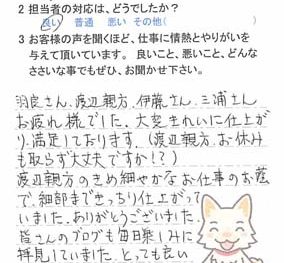 2 担当者の対応は、どうでしたか？
良い 普通 悪い その他( )
3 お客様の声を聞くほど、仕事に情熱とやりがいを
与えて頂いています。 良いこと、悪いこと、どんな
ささいな事でもぜひ、お聞かせ下さい。
羽良さん、渡辺親方、伊藤さん、三浦さん
お疲れ様でした。大変きれいに仕上が
り、満足しております。(渡辺親方、お休み
も取らず大丈夫ですか！？)
渡辺親方のきめ細やかなお仕事のお蔭
で、細部まできっちり仕上がって
いました。ありがとうございました。
皆さんのブログも毎日楽しみに
拝見していました。とっても良い